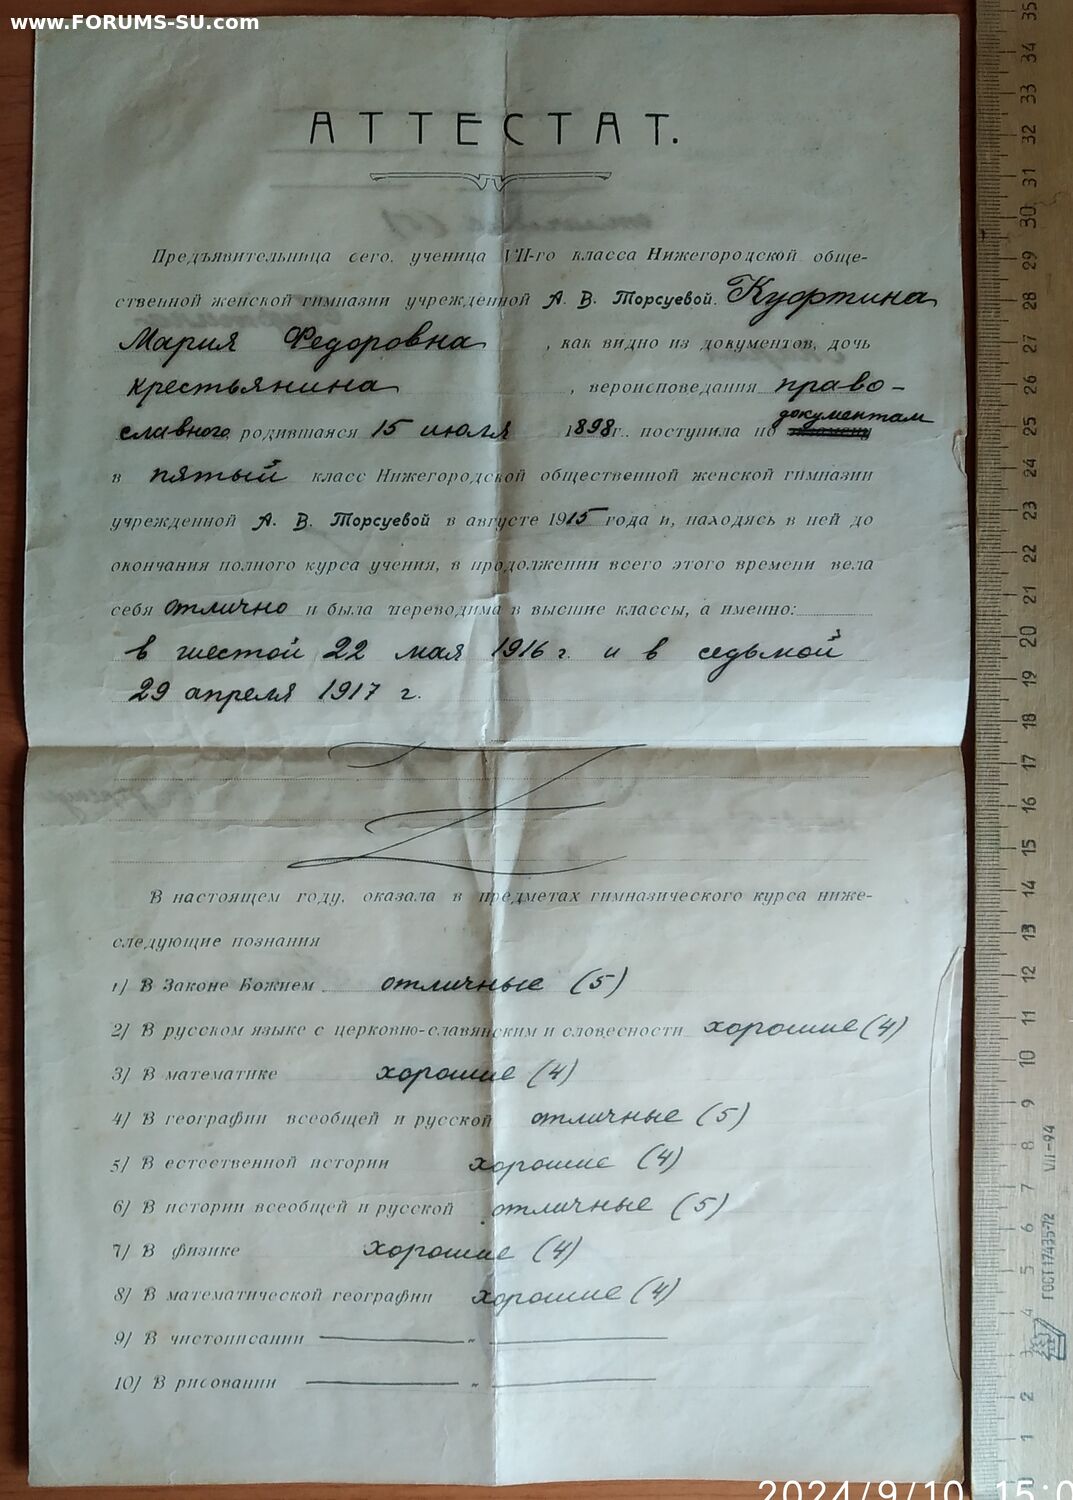 www.FORUMS-SU.com
АТТЕСТАТ.
Предъявительница сего, ученица VII-го класса Нижегородской обще-
ственной женской гимназии учрежденной А. В. Торсуевой. Куфтина
Мария Федоровна, как видно из документов, дочь
крестьянина, вероисповедания право-
документам
славного, родившаяся 15 июля 1898 г., поступила по
в пятый класс Нижегородской общественной женской гимназии
учрежденной А. В. Торсуевой в августе 1915 года и, находясь в ней до
окончания полного курса учения, в продолжении всего этого времени вела
себя отлично и была переводима в высшие классы, а именно:
в шестой 22 мая 1916 г. и в седьмой
29 апреля 1917 г.
В настоящем году, оказала в предметах гимназического курса ниже-
следующие познания
1) В Законе Божием отличные (5)
2) В русском языке с церковно-славянским и словесности хорошие (4)
3) В математике хорошие (4)
4) В географии всеобщей и русской отличные (5)
5) В естественной истории хорошие (4)
6) В истории всеобщей и русской отличные (5)
7) В физике хорошие (4)
8) В математической географии хорошие (4)
9) В чистописании — " —
10) В рисовании — " —
35 34 33 32 31 30 29 28 27 26 25 24 23 22 21 20 19 18 17 16 15 14 13 12 11 10 9 8 7 6 5 4 3 2 1
ГОСТ 17435-72 VII-94
2024/9/10 15:0